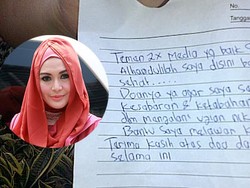 No.
Tangga
Teman 2x Media yg baik
Alhamdulillah saya disini b
sehat...
Doanya ya agar saya sa
Kesabaran & ketabahan
dan menjalani ujian
Bantu saya melawan
Terima kasih atas doa da
selama ini